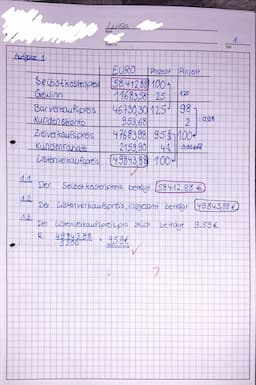 Luisa
1
Aufgabe 1
EURO Prozent Prozent
Selbstkostenpreis 58412,88 100
Gewinn 11683,58 25 125
Barverkaufspreis 46730,30 125 98
Kundenskonto 953,68 2
Zielverkaufspreis 47683,98 95 100
Kundenrabatt 2159,90 4
Listenverkaufspreis 49843,88 100
1.1 Der Selbstkostenpreis beträgt 58412,88 €
1.2 Der Listenverkaufspreis insgesamt beträgt 49843,88 €
1.3 Der Listenverkaufspreis pro Stück beträgt 9,59€
R: 49843,88
5200 = 9,59 €